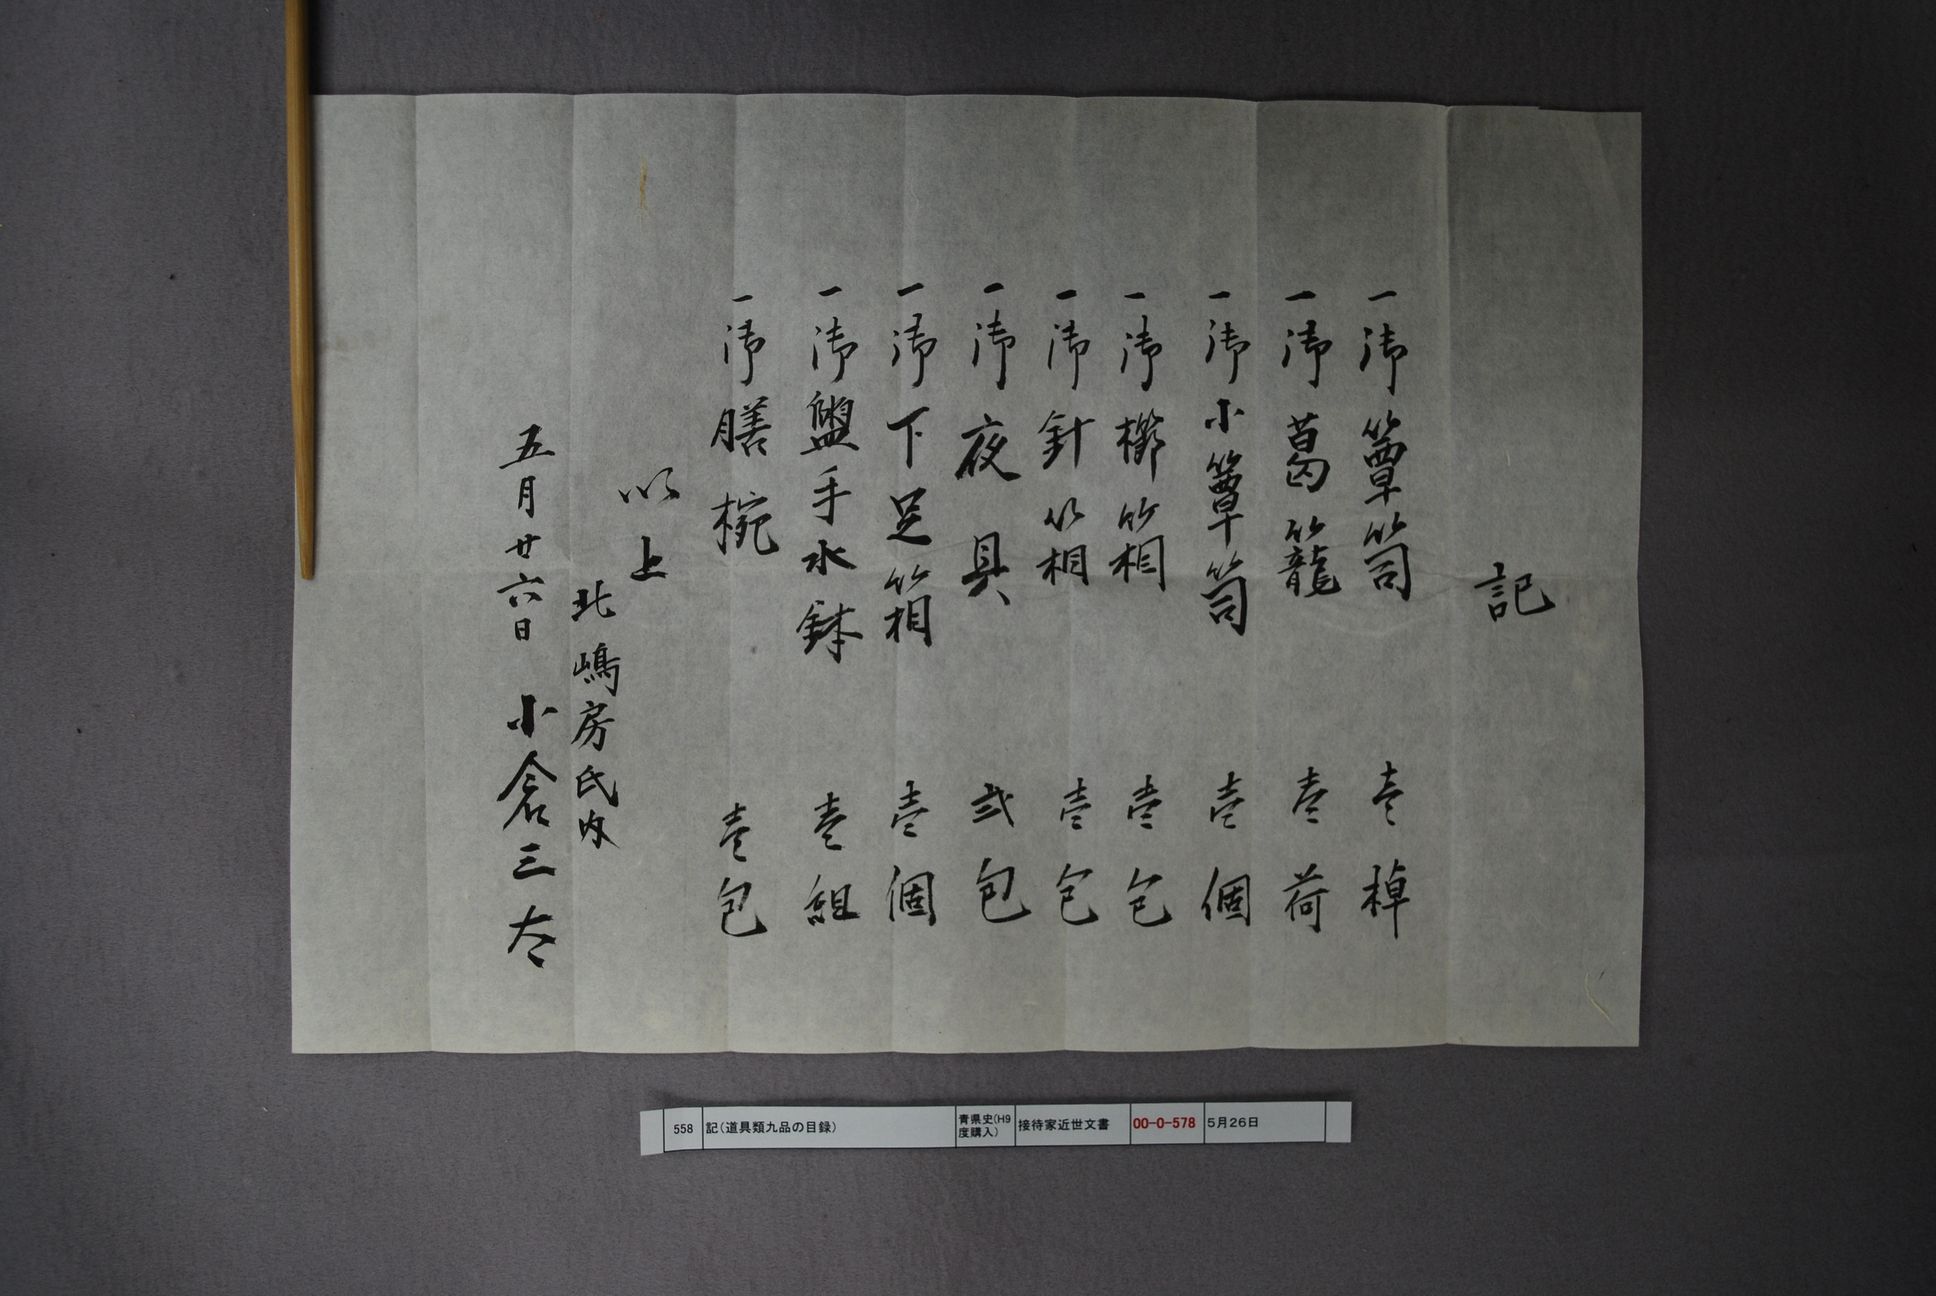 記
一 御簞笥 壱棹
一 御葛籠 壱荷
一 御小簞笥 壱個
一 御櫛箱 壱包
一 御針箱 壱包
一 御夜具 弐包
一 御下足箱 壱個
一 御盥手水鉢 壱組
一 御膳椀 壱包
以上
北嶋房氏内
五月廿六日 小倉三太
558 記(道具類九品の目録) 青県史(H9度購入) 接待家近世文書 00-0-578 5月26日